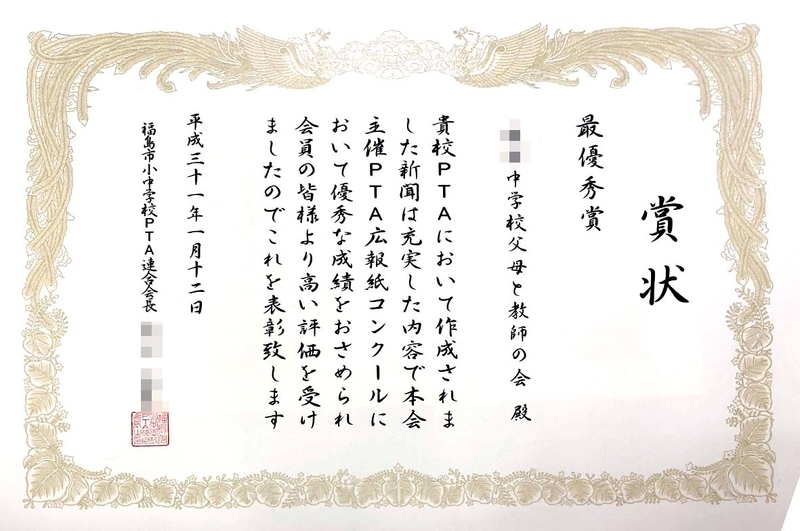 賞状
最優秀賞
中学校父母と教師の会 殿
貴校PTAにおいて作成されま
した新聞は充実した内容で本会
主催PTA広報紙コンクールに
おいて優秀な成績をおさめられ
会員の皆様より高い評価を受け
ましたのでこれを表彰致します
平成三十一年一月十二日
福島市小中学校PTA連合会長